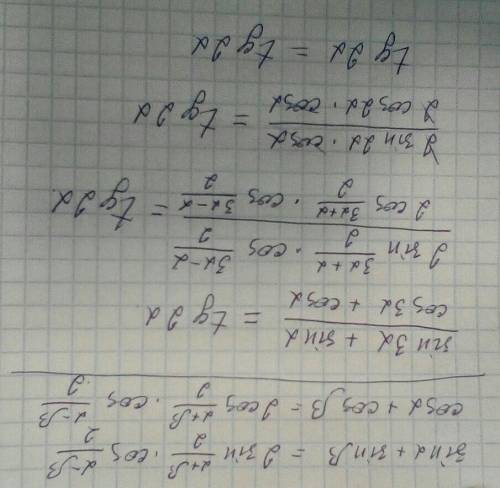 sinα + sinβ = 2 sin (α+β)/2 · cos (α-β)/2
cosα + cosβ = 2 cos (α+β)/2 · cos (α-β)/2
(sin 3α + sin α)/(cos 3α + cos α) = tg 2α
(2 sin (3α+α)/2 · cos (3α-α)/2)/(2 cos (3α+α)/2 · cos (3α-α)/2) = tg 2α
(2 sin 2α · cosα)/(2 cos 2α · cosα) = tg 2α
tg 2α = tg 2α